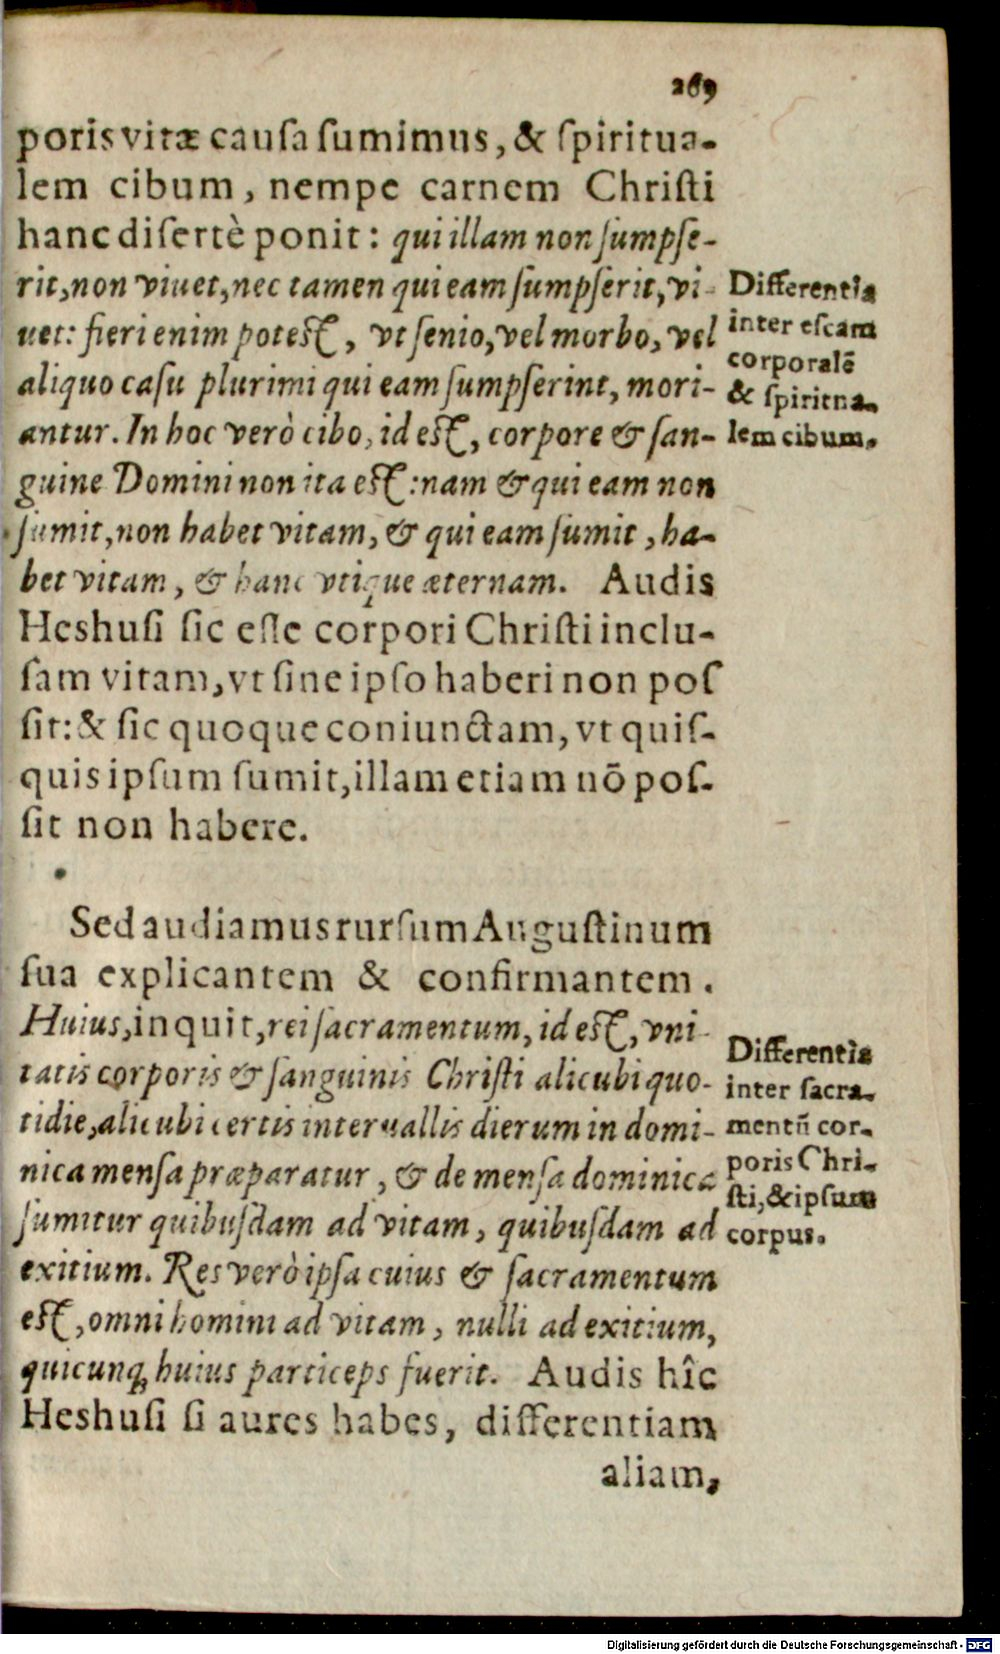 269
poris vitæ causa sumimus, & spiritua-
lem cibum, nempe carnem Christi
hanc disertè ponit: qui illam non sumpse-
rit, non viuet, nec tamen qui eam sumpserit, vi-
uet: fieri enim potest, vt senio, vel morbo, vel
aliquo casu plurimi qui eam sumpserint, mori-
antur. In hoc verò cibo, id est, corpore & san-
guine Domini non ita est: nam & qui eam non
sumit, non habet vitam, & qui eam sumit, ha-
bet vitam, & hanc vtique æternam. Audis
Heshusi sic esse corpori Christi inclu-
sam vitam, vt sine ipso haberi non pos
sit: & sic quoque coniunctam, vt quis-
quis ipsum sumit, illam etiam nō pos-
sit non habere.
Differentia
inter escam
corporalē
& spiritua-
lem cibum.
Sed audiamus rursum Augustinum
sua explicantem & confirmantem.
Huius, inquit, rei sacramentum, id est, vni-
tatis corporis & sanguinis Christi alicubi quo-
tidie, alicubi certis interuallis dierum in domi-
nica mensa præparatur, & de mensa dominica
sumitur quibusdam ad vitam, quibusdam ad
exitium. Res verò ipsa cuius & sacramentum
est, omni homini ad vitam, nulli ad exitium,
quicunq, huius particeps fuerit. Audis hîc
Heshusi si aures habes, differentiam
aliam,
Differentia
inter sacra-
mentū cor-
poris Chri-
sti, & ipsum
corpus.
Digitalisierung gefördert durch die Deutsche Forschungsgemeinschaft - DFG